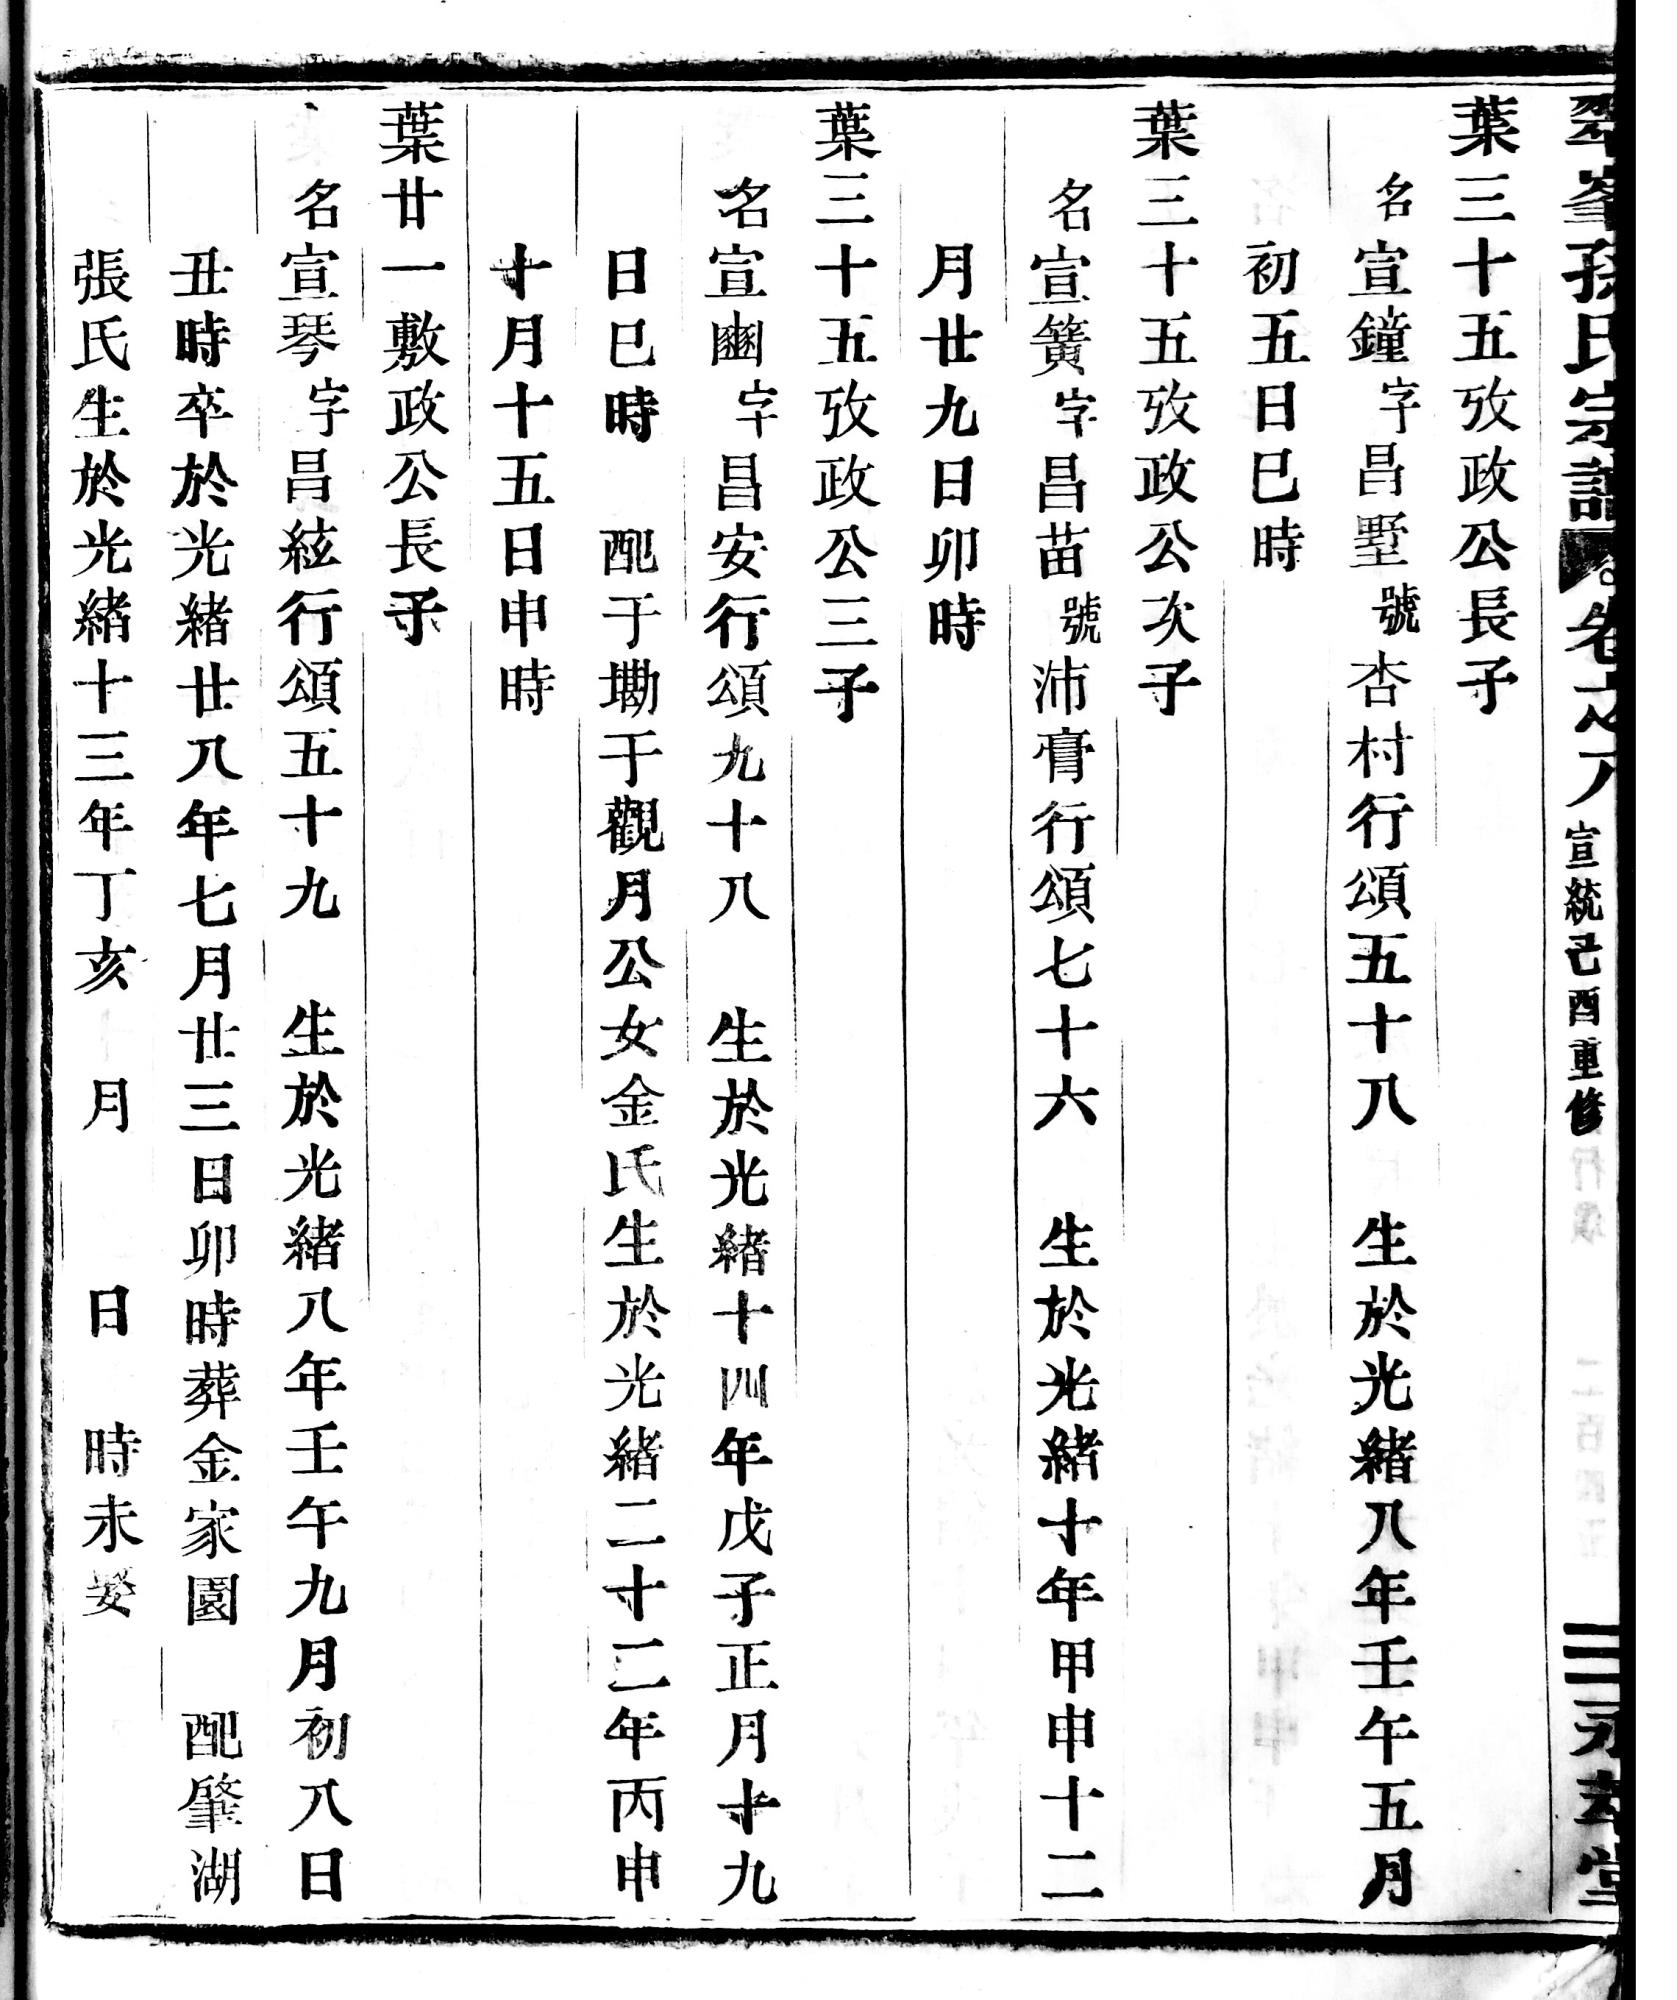 翠峯孫氏宗譜 卷之八 宣統己酉重修 永萃堂
葉三十五攷政公長子
名宣鐘字昌墅號杏村行頌五十八 生於光緒八年壬午五月
初五日巳時
葉三十五攷政公次子
名宣簧字昌苗號沛膏行頌七十六 生於光緒十年甲申十二
月廿九日卯時
葉三十五攷政公三子
名宣豳字昌安行頌九十八 生於光緒十四年戊子正月十九
日巳時 配于墈于觀月公女金氏生於光緒二十二年丙申
十月十五日申時
葉廿一敷政公長子
名宣琴字昌絃行頌五十九 生於光緒八年壬午九月初八日
丑時卒於光緒廿八年七月廿三日卯時葬金家園 配肇湖
張氏生於光緒十三年丁亥 月 日 時未娶